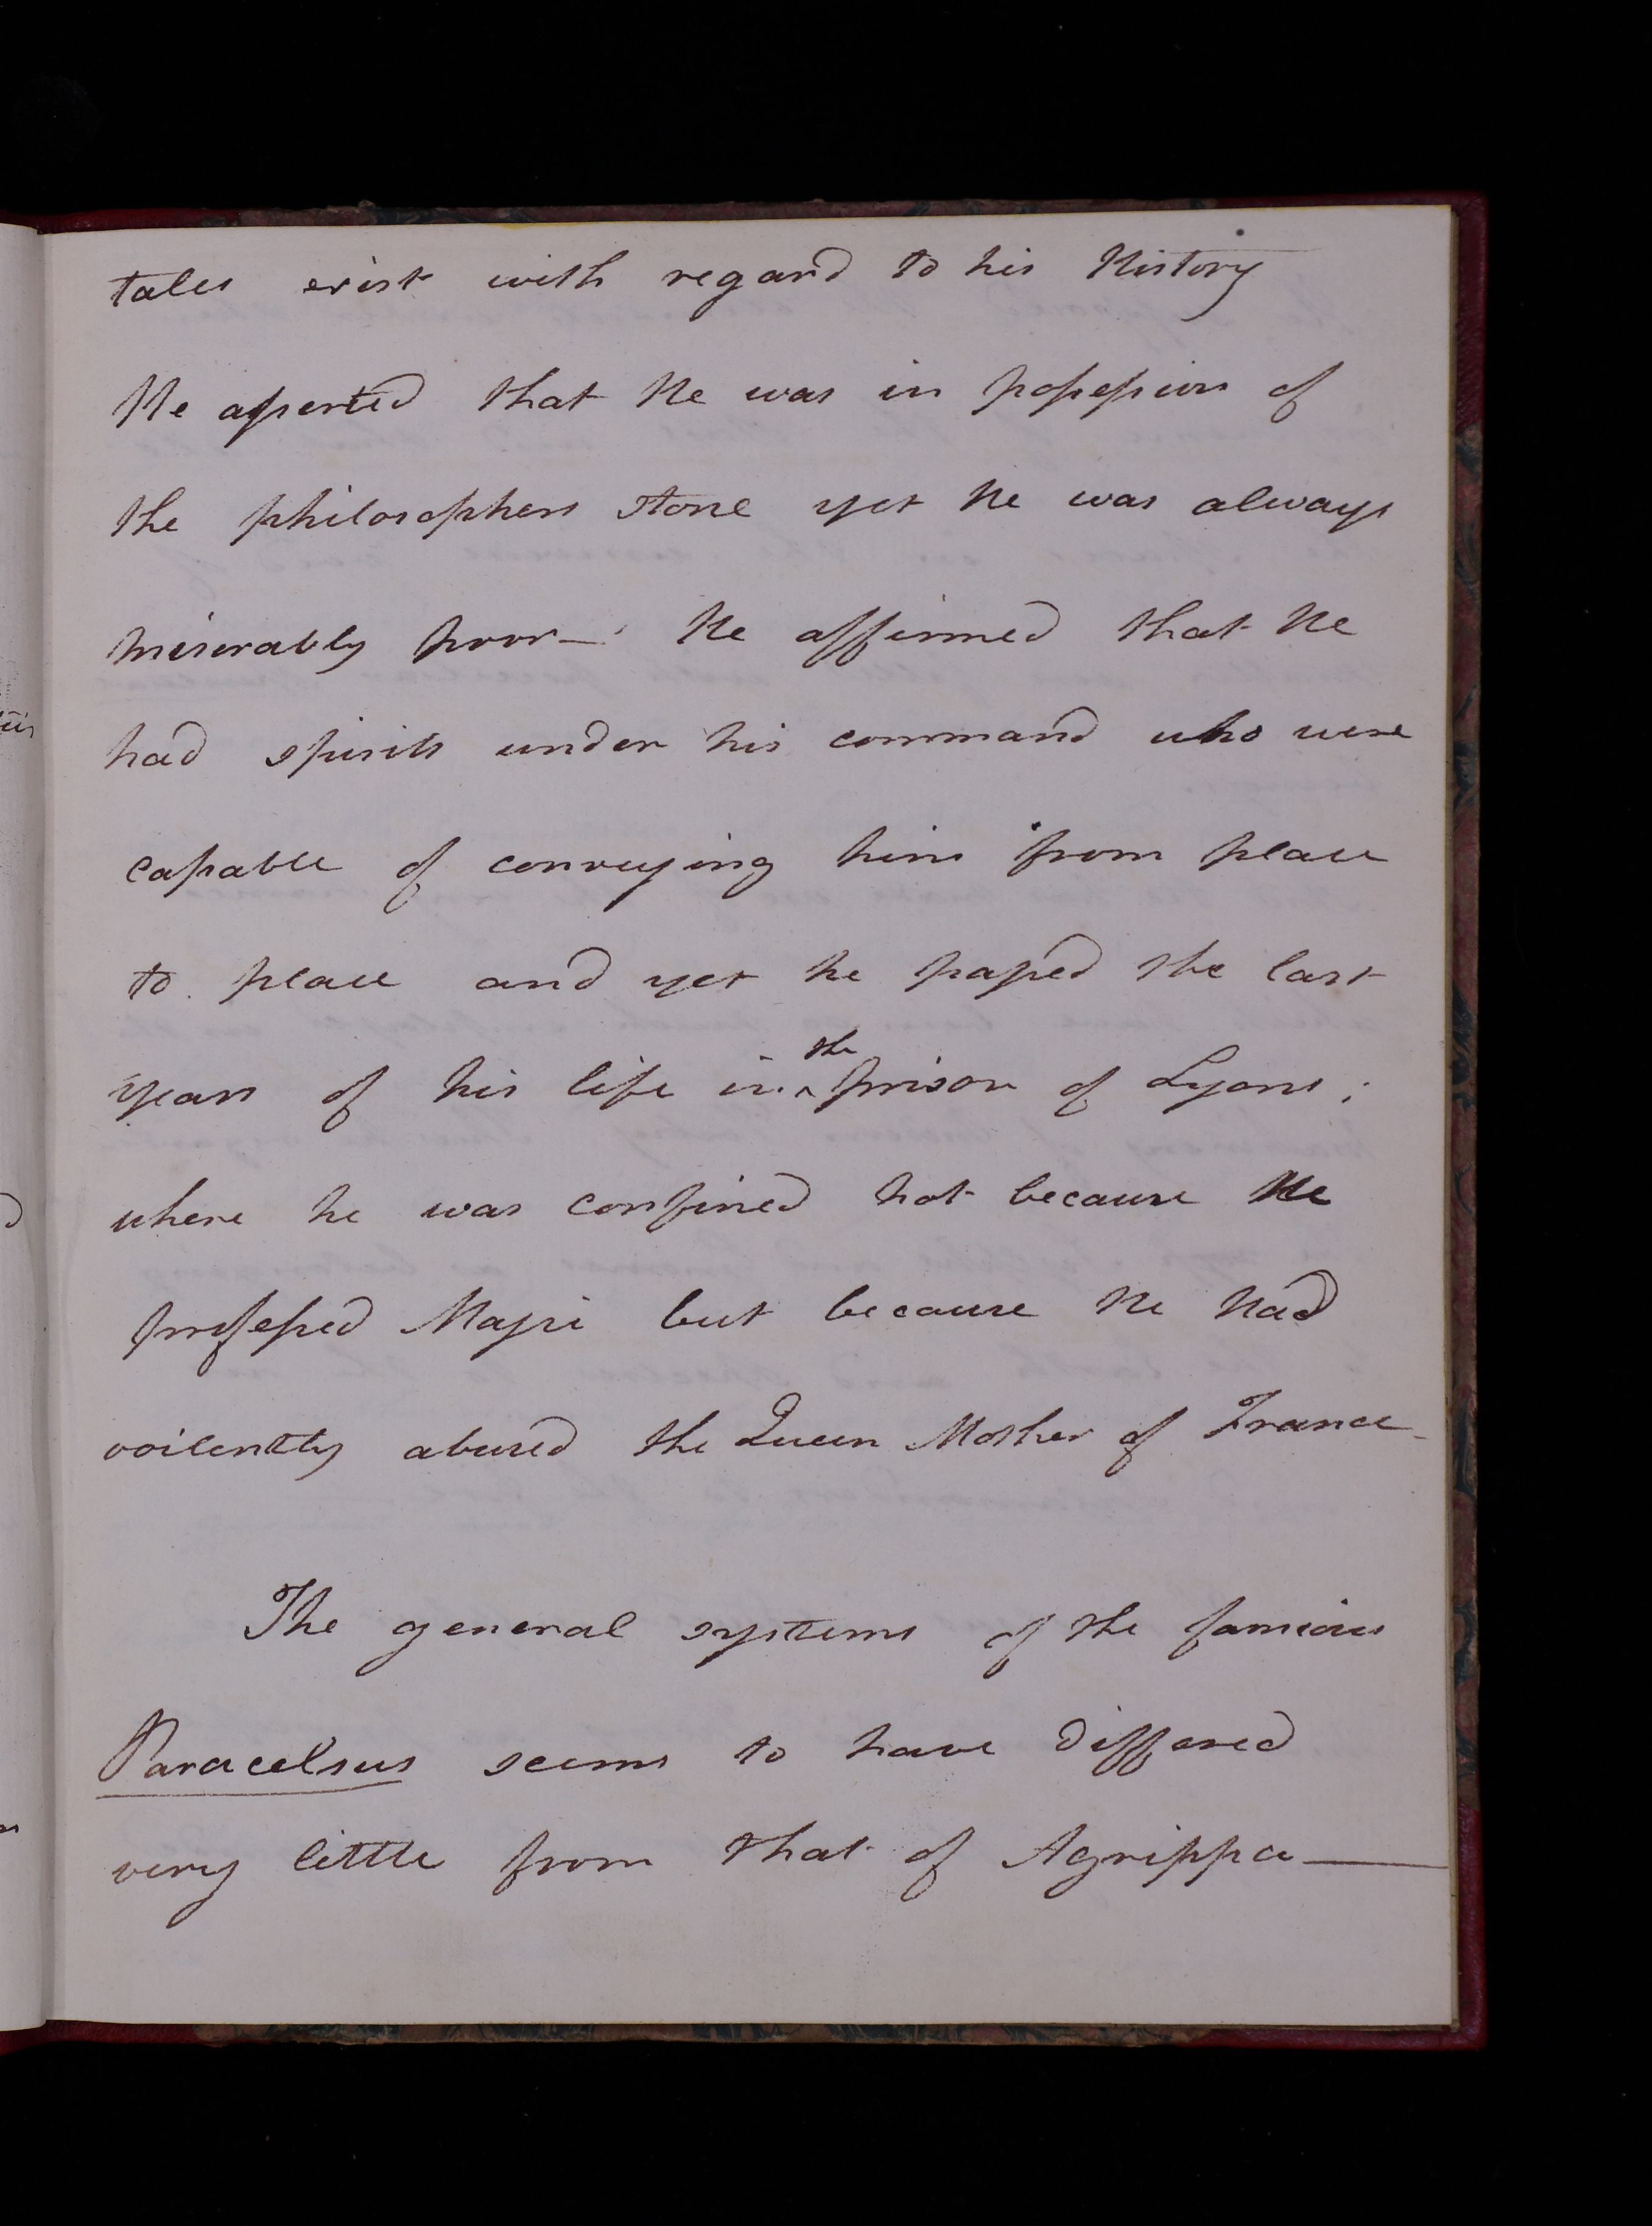 tales exist with regard to his History
He asserted that He was in possession of
the philosophers stone yet he was always
miserably poor — He affirmed that He
had spirits under his command who were
capable of conveying him from place
to place and yet he passed the last
years of his life in ^the prison of Lyons ;
where he was confined not because He
professed Magic but because He Had
voilently abused the Queen Mother of France -
The general systems of the famious
Paracelsus seems to have differed
very little from that of Agrippa —